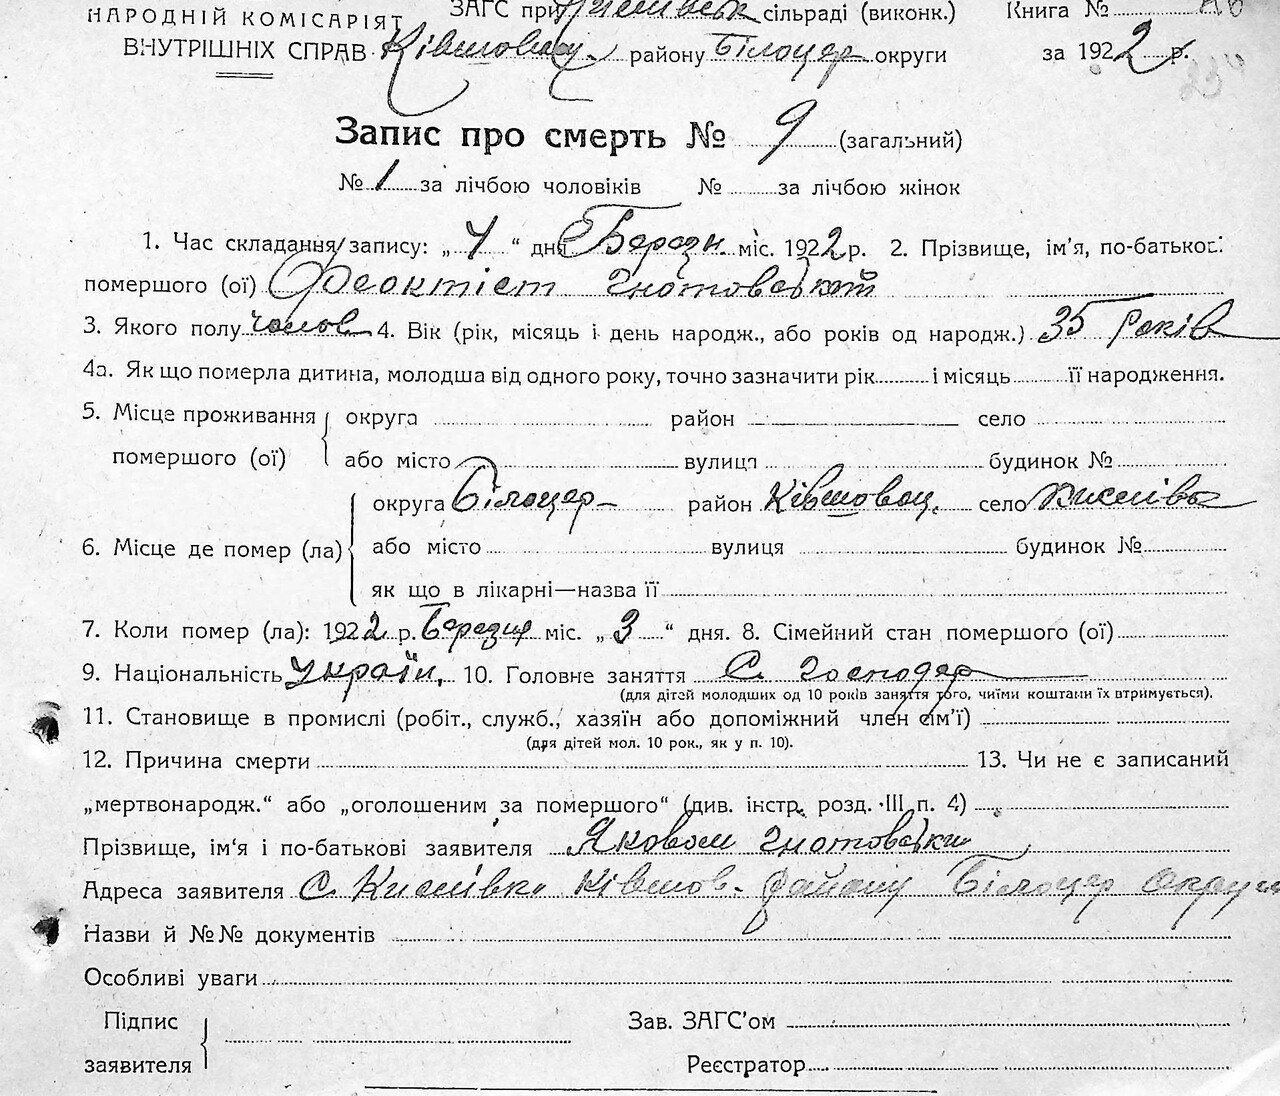 НАРОДНІЙ КОМІСАРІЯТ ЗАГС при сільраді (виконк.) Книга №
ВНУТРІШНІХ СПРАВ Ківшовац. району Білоцер округи за 1922 р.
Запис про смерть № 9 (загальний)
№ 1 за лічбою чоловіків № за лічбою жінок
1. Час складання запису: „ 4 “ дня Березн. міс. 1922 р. 2. Прізвище, ім'я, по-батькові
помершого (ої) Феоктіст Гнотовський
3. Якого полу чолов. 4. Вік (рік, місяць і день народж., або років од народж.) 35 років
4а. Як що померла дитина, молодша від одного року, точно зазначити рік і місяць її народження.
5. Місце проживання помершого (ої) округа район село
або місто вулиця будинок №
6. Місце де помер (ла) округа Білоцер район Ківшовац. село
або місто вулиця будинок №
як що в лікарні—назва її
7. Коли помер (ла): 1922 р. Березня міс. „ 3 “ дня. 8. Сімейний стан помершого (ої)
9. Національність україн. 10. Головне заняття С. господар
(для дітей молодших од 10 років заняття того, чиїми коштами їх втримується).
11. Становище в промислі (робіт., служб., хазяїн або допоміжний член сім'ї)
(для дітей мол. 10 рок., як у п. 10).
12. Причина смерти 13. Чи не є записаний
„мертвонародж.“ або „оголошеним за помершого“ (див. інстр. розд. III п. 4)
Прізвище, ім'я і по-батькові заявителя Яковом Гнотовськи
Адреса заявителя С. Кислівка Ківшов. району Білоцер округи
Назви й №№ документів
Особливі уваги
Підпис заявителя Зав. ЗАГС'ом
Реєстратор